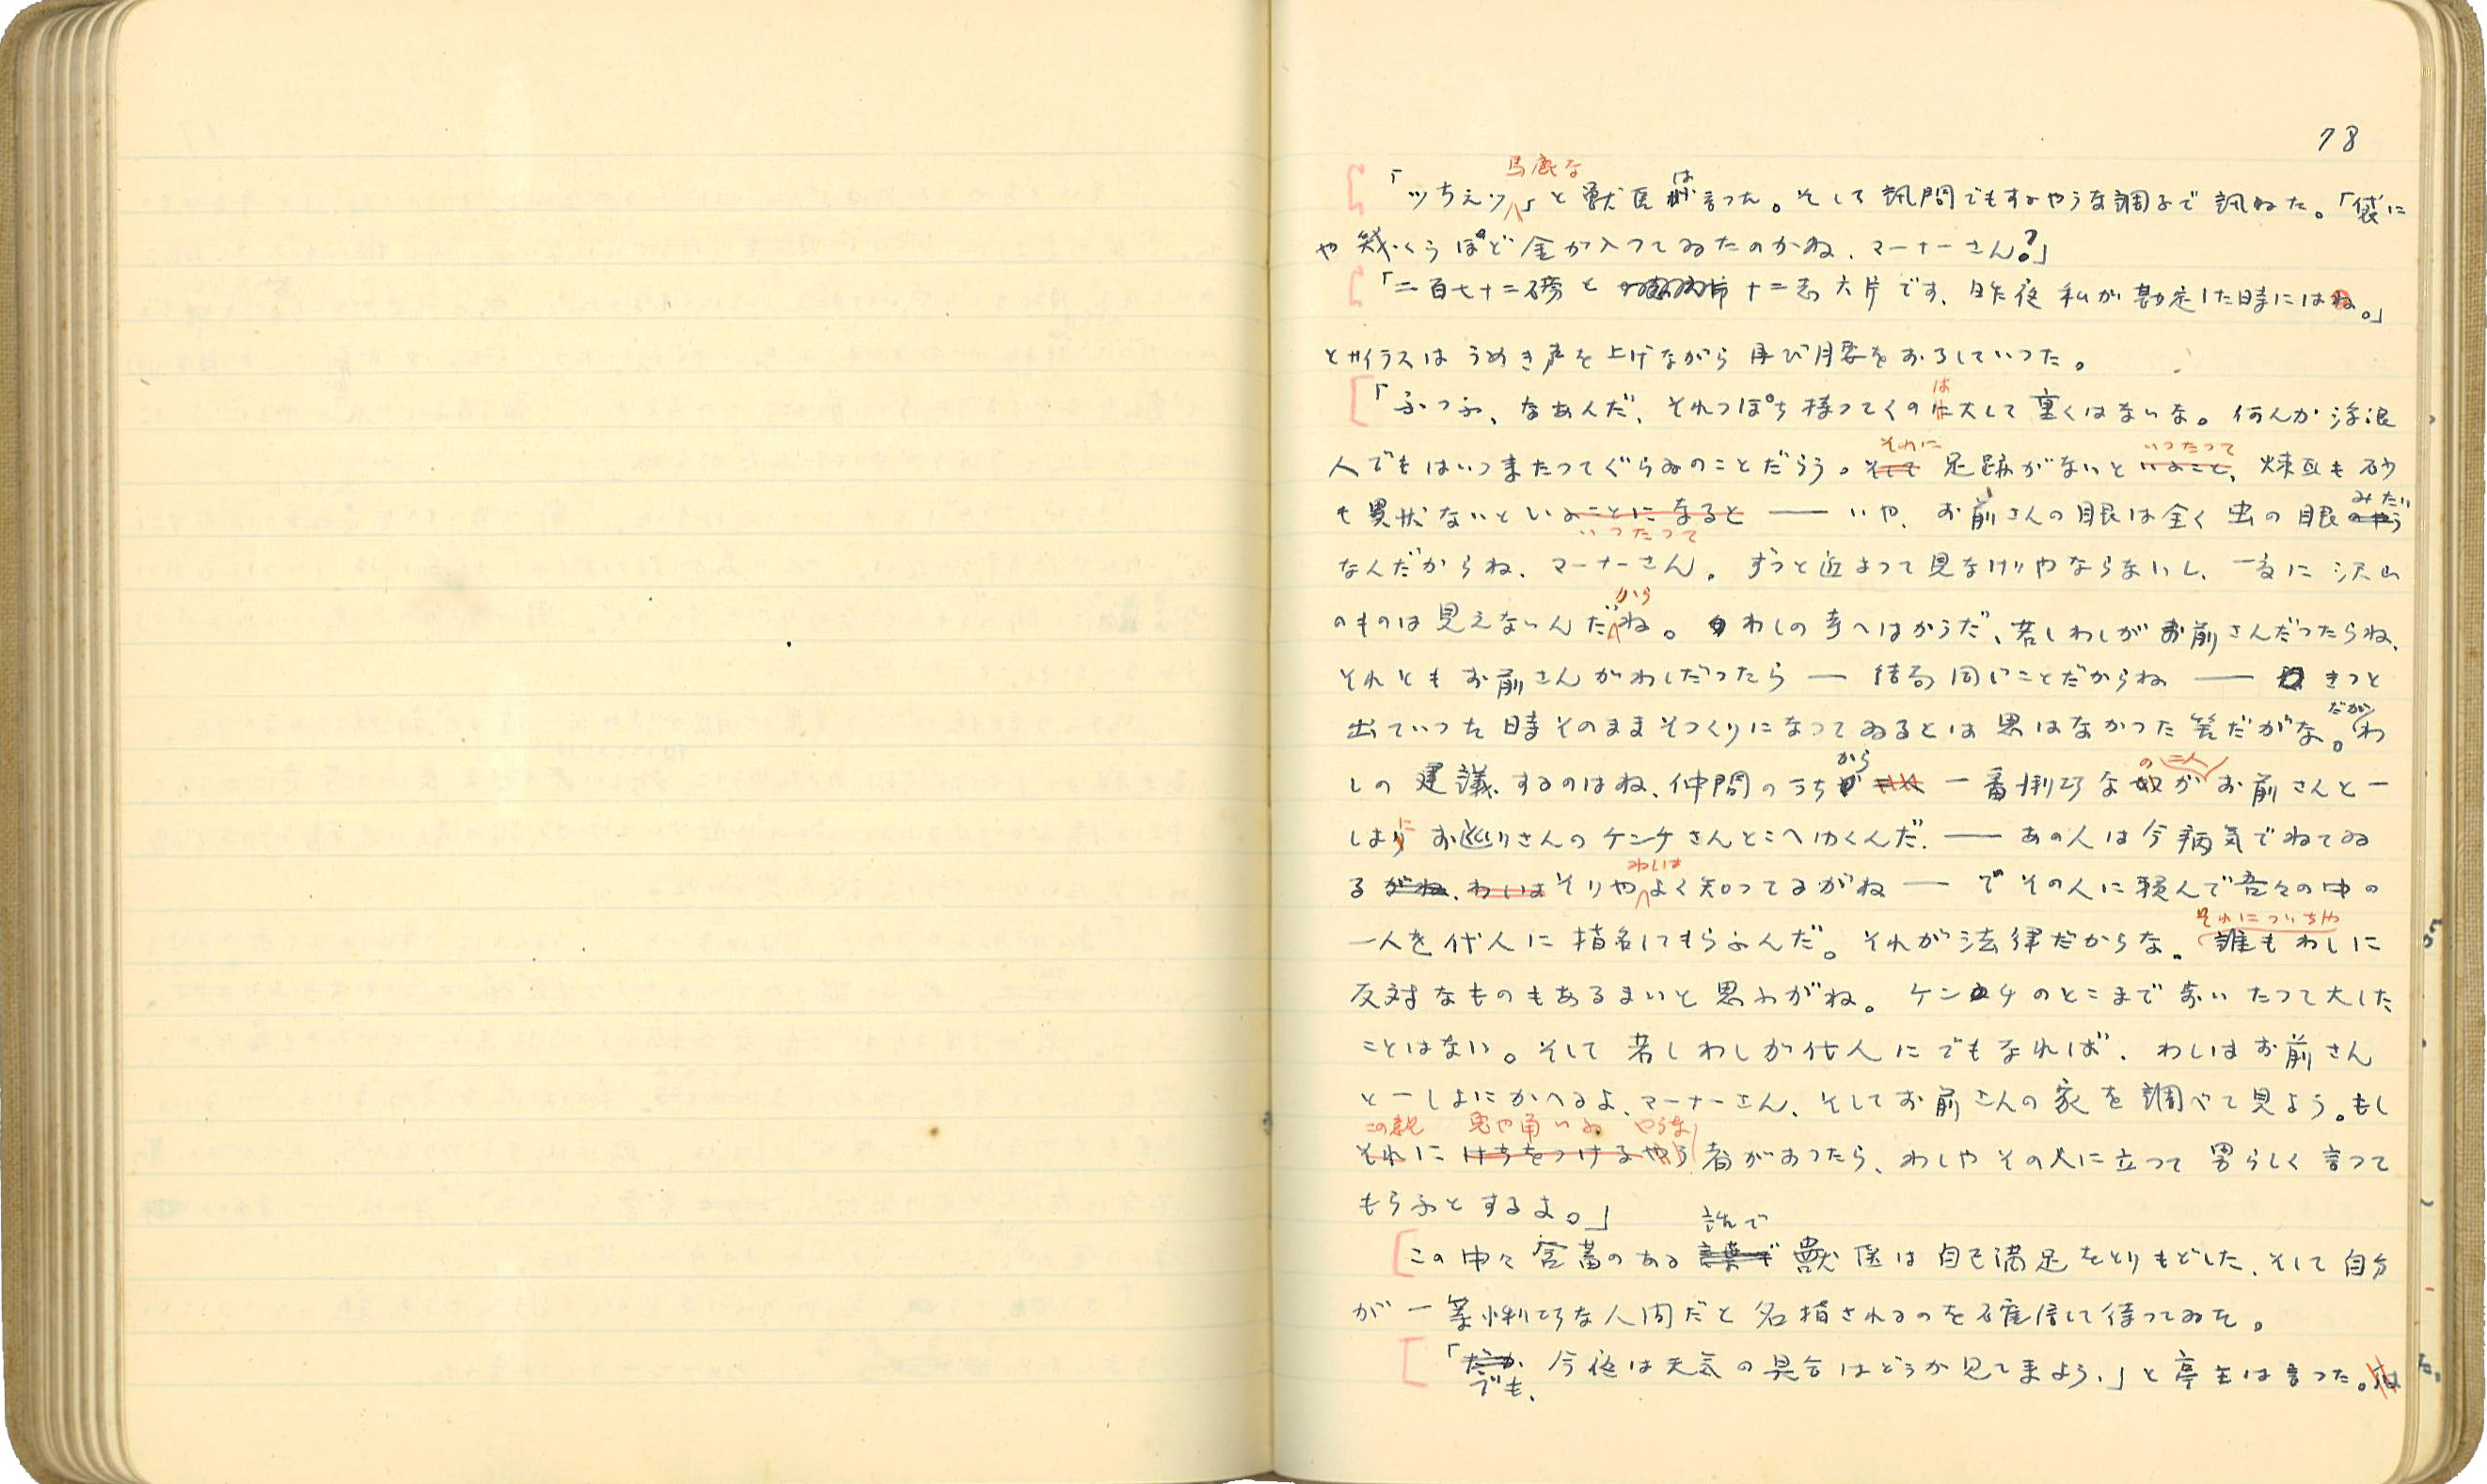 78
馬鹿な
「ッちえッ」と獣医は言つた。そして訊問でもするやうな調子で訊ねた。「袋に
や幾くらぽど金が入つてゐたのかね、マーナーさん?」
「二百七十二磅と十二志六片です、昨夜私が勘定した時にはね。」
とサイラスはうめき声を上げながら再び腰をおろしていつた。
「ふつふ、なあんだ、それつぽち持つてくのは大して重くはないな。何んか浮浪
人でもはいつまたつてぐらゐのことだらう。それに足跡がないといつたつて、煉瓦も砂
も異状ないといつたつて――いや、お前さんの眼は全く虫の眼みたい
なんだからね、マーナーさん。ずつと近よつて見なけりやならないし、一度に沢山
のものは見えないんだからね。わしの考へはかうだ、若しわしがお前さんだつたらね、
それともお前さんがわしだつたら――結局同じことだからね――きつと
出ていつた時そのままそつくりになつてゐるとは思はなかつた筈だがな。だがわ
しの建議するのはね、仲間のうちから一番悧巧なの二人がお前さんと一
しよにお巡りさんのケンチさんとこへゆくんだ。――あの人は今病気でねてゐ
るそりやわしはよく知つてるがね――でその人に頼んで吾々の中の
一人を代人に指名してもらふんだ。それが法律だからな。それについちや誰もわしに
反対なものもあるまいと思ふがね。ケンチのとこまで歩いたつて大した
ことはない。そして若しわしが代人にでもなれば、わしはお前さん
と一しよにかへるよ、マーナーさん、そしてお前さんの家を調べて見よう。もし
この説に兎や角いふやうな者があつたら、わしやその人に立つて男らしく言つて
もらふとするよ。」
この中々含蓄のある説で獣医は自己満足をとりもどした、そして自分
が一等悧巧な人間だと名指されるのを確信して待つてゐた。
「でも、今夜は天気の具合はどうか見てましよう、」と亭主は言つた。